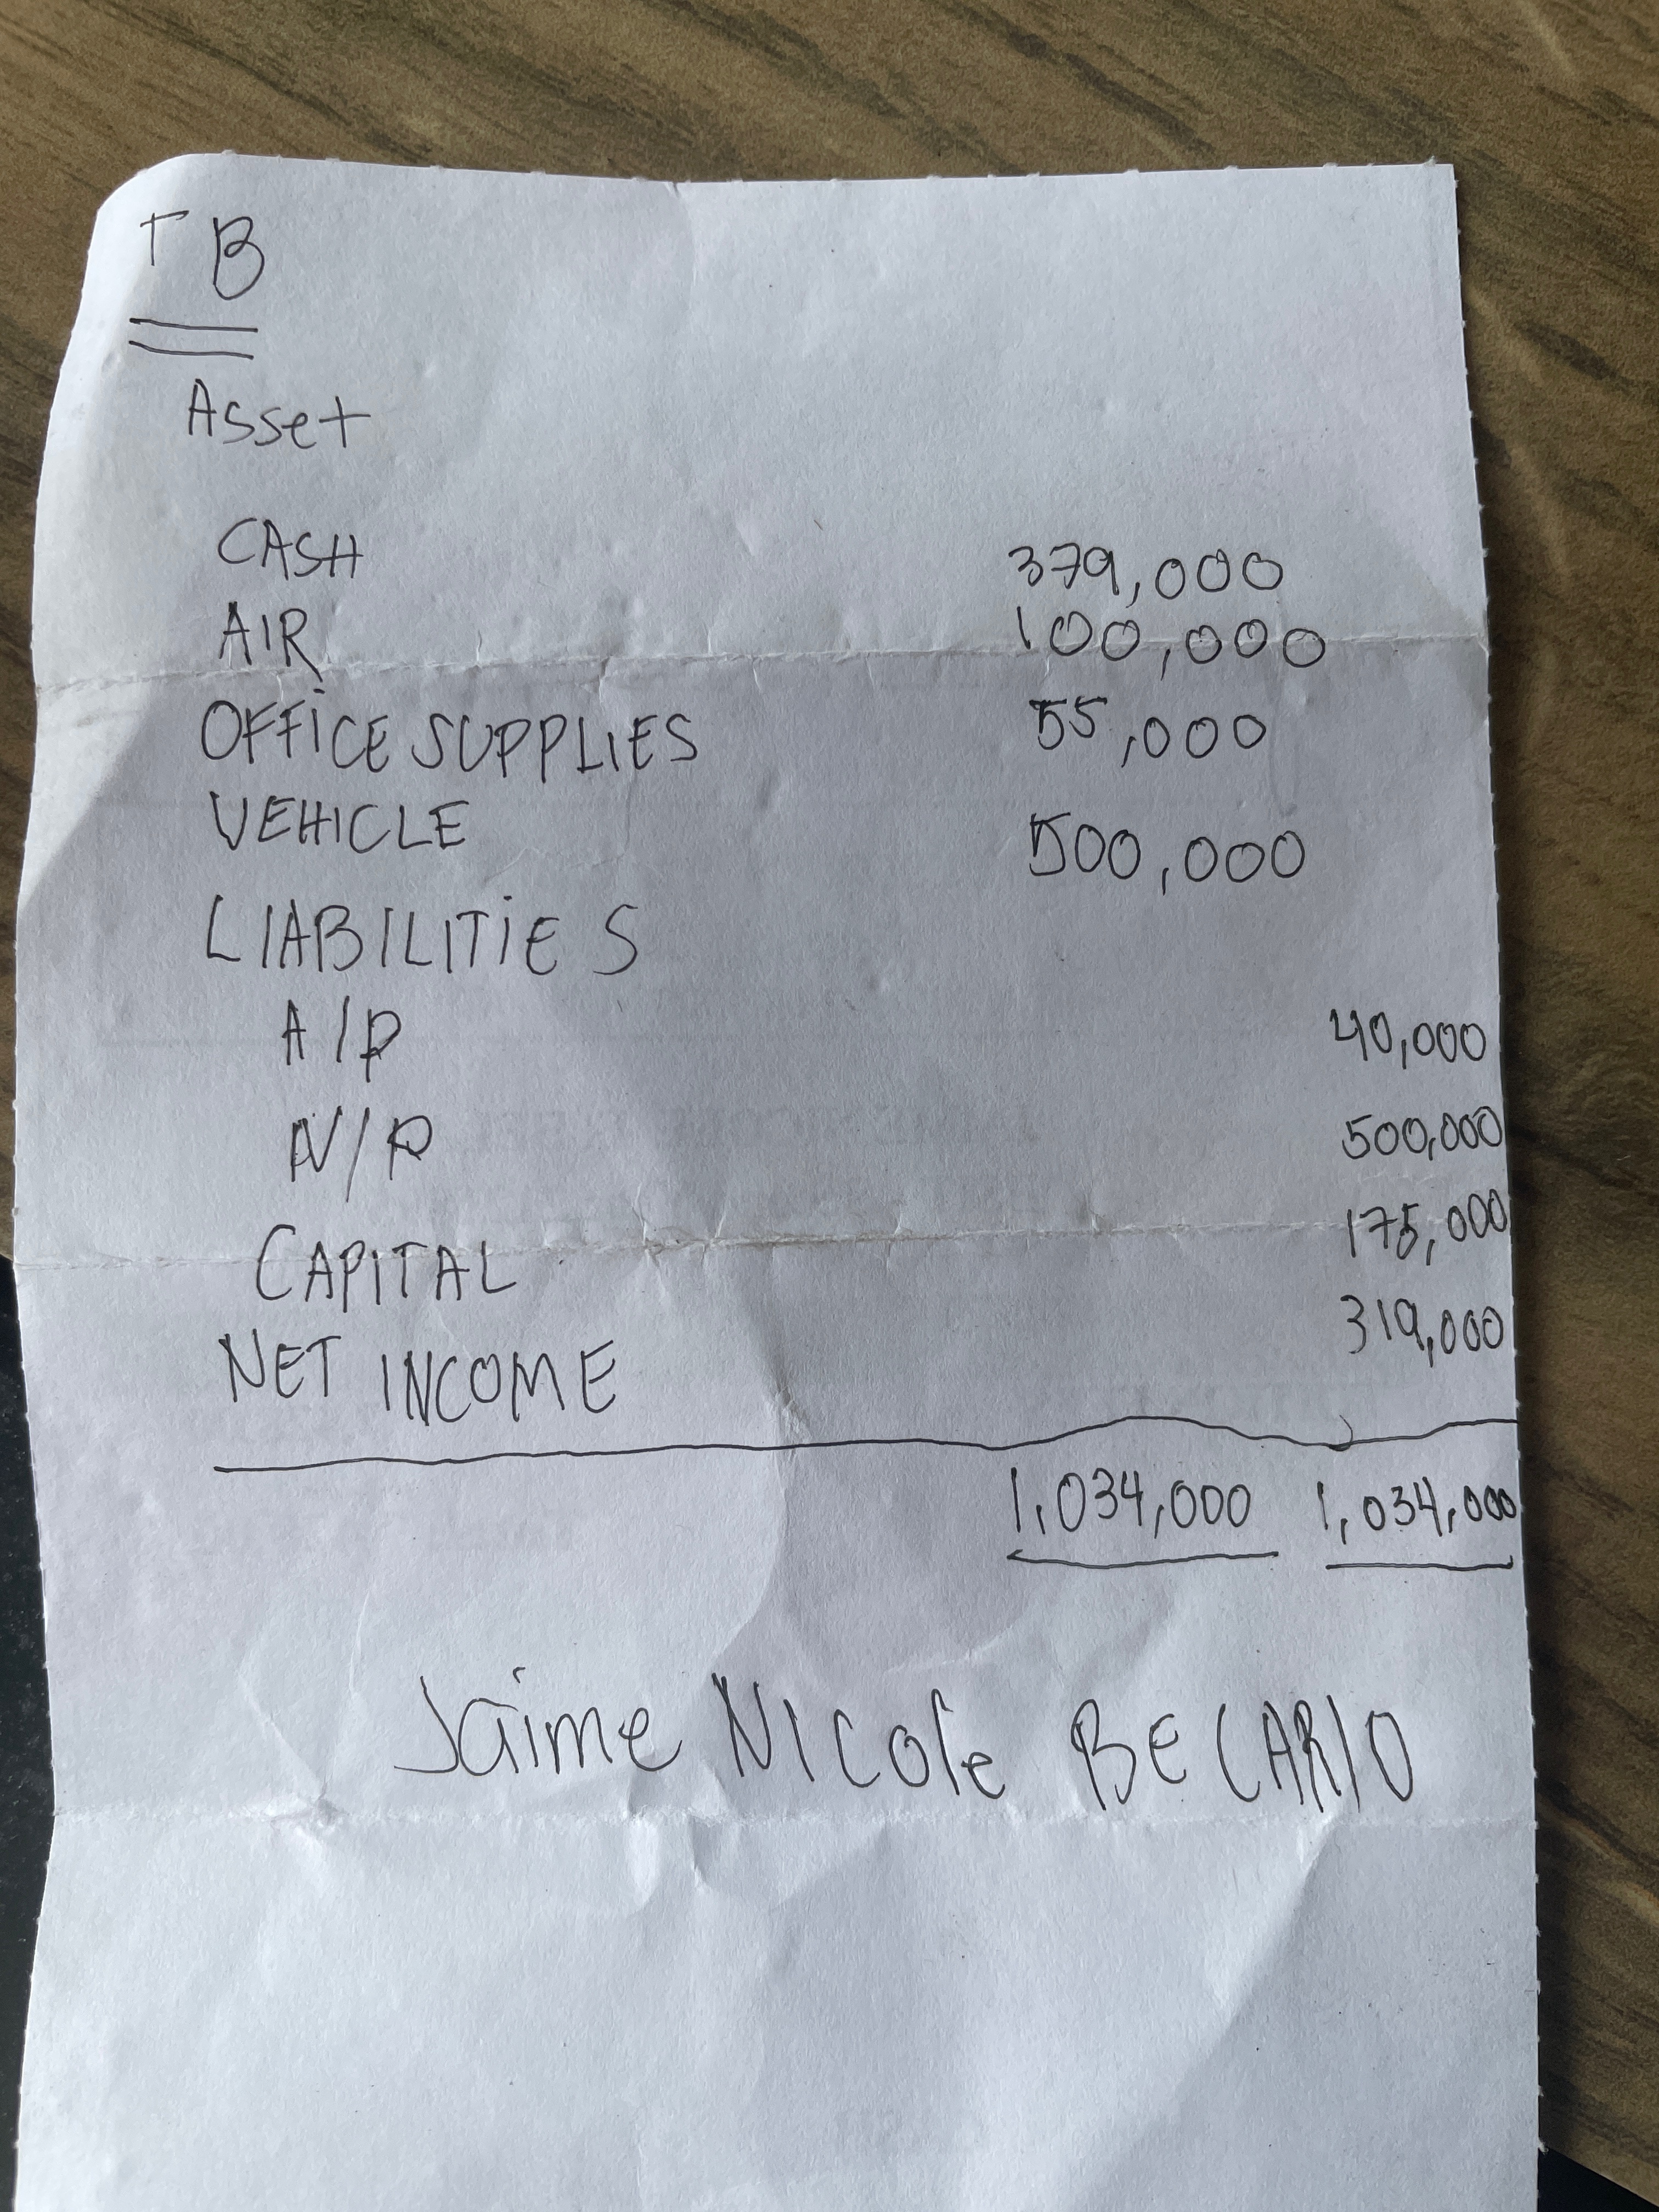 TB
Asset
CASH 379,000
A/R 100,000
OFFICE SUPPLIES 55,000
VEHICLE 500,000
LIABILITIES
A/P 40,000
N/P 500,000
CAPITAL 175,000
NET INCOME 319,000
1,034,000 1,034,000
Jaime NICole BECARIO